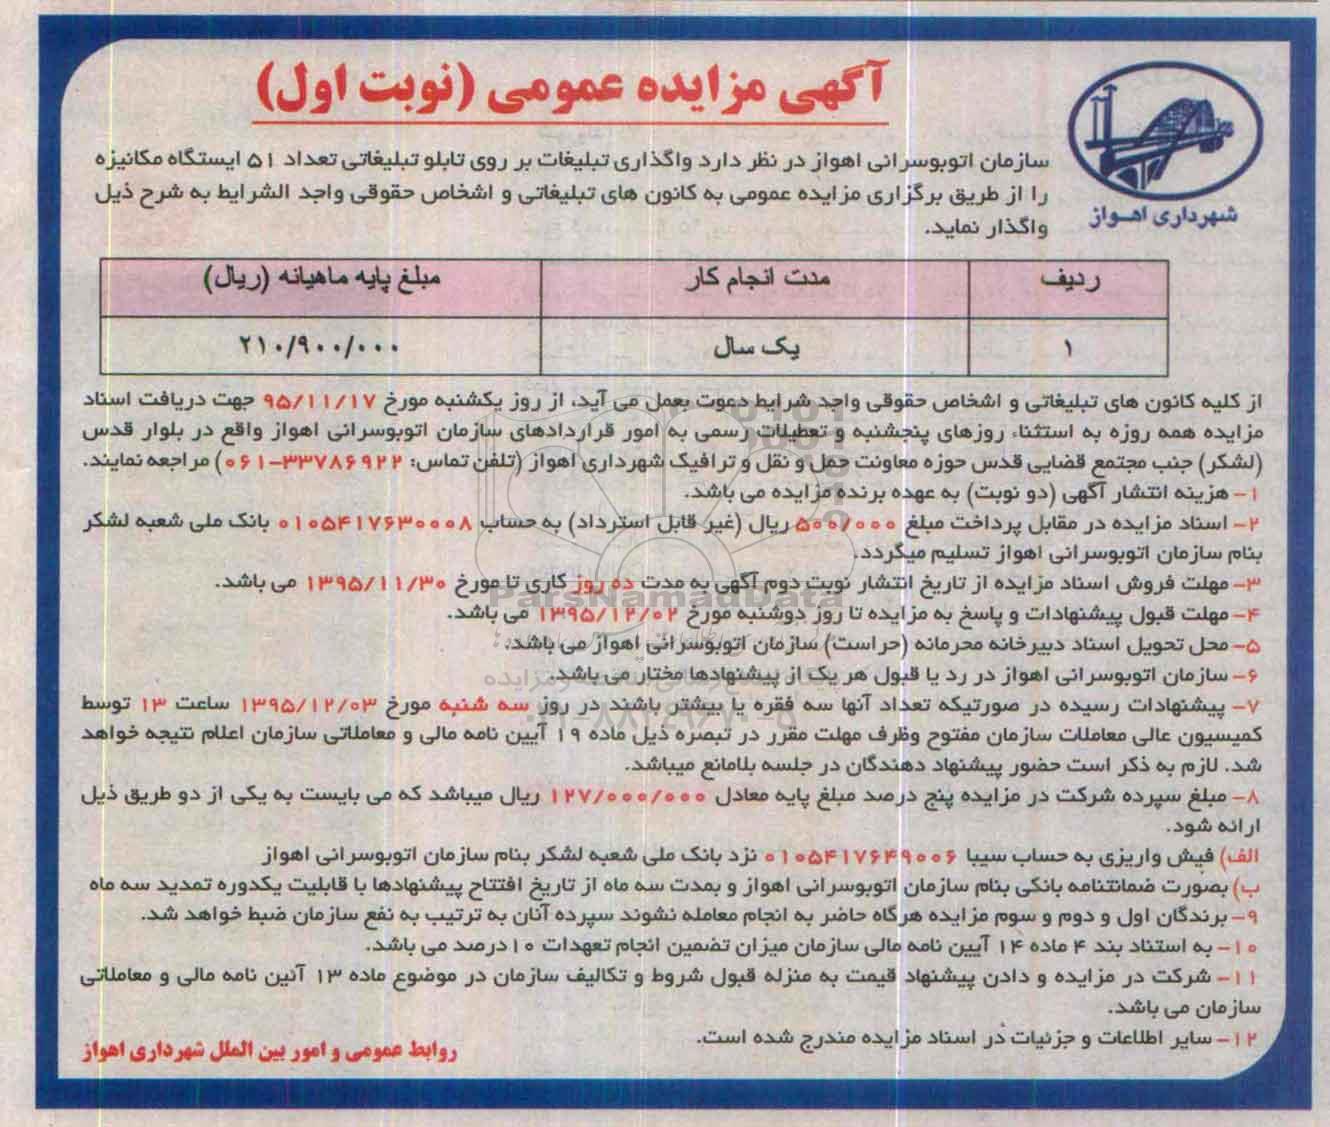 آگهی مزایده عمومی (نوبت اول)
شهرداری اهواز
سازمان اتوبوسرانی اهواز در نظر دارد واگذاری تبلیغات بر روی تابلو تبلیغاتی تعداد ۵۱ ایستگاه مکانیزه
را از طریق برگزاری مزایده عمومی به کانون های تبلیغاتی و اشخاص حقوقی واجد الشرایط به شرح ذیل
واگذار نماید.
ردیف مدت انجام کار مبلغ پایه ماهیانه (ریال)
۱ یک سال ۲۱۰/۹۰۰/۰۰۰
از کلیه کانون های تبلیغاتی و اشخاص حقوقی واجد شرایط دعوت بعمل می آید، از روز یکشنبه مورخ ۹۵/۱۱/۱۷ جهت دریافت اسناد
مزایده همه روزه به استثناء روزهای پنجشنبه و تعطیلات رسمی به امور قراردادهای سازمان اتوبوسرانی اهواز واقع در بلوار قدس
(لشکر) جنب مجتمع قضایی قدس حوزه معاونت حمل و نقل و ترافیک شهرداری اهواز (تلفن تماس: ۳۳۷۸۶۹۲۲-۰۶۱) مراجعه نمایند.
۱- هزینه انتشار آگهی (دو نوبت) به عهده برنده مزایده می باشد.
۲- اسناد مزایده در مقابل پرداخت مبلغ ۵۰۰/۰۰۰ ریال (غیر قابل استرداد) به حساب ۰۱۰۵۴۱۷۶۳۰۰۰۸ بانک ملی شعبه لشکر
بنام سازمان اتوبوسرانی اهواز تسلیم میگردد.
۳- مهلت فروش اسناد مزایده از تاریخ انتشار نوبت دوم آگهی به مدت ده روز کاری تا مورخ ۱۳۹۵/۱۱/۳۰ می باشد.
۴- مهلت قبول پیشنهادات و پاسخ به مزایده تا روز دوشنبه مورخ ۱۳۹۵/۱۲/۰۲ می باشد.
۵- محل تحویل اسناد دبیرخانه محرمانه (حراست) سازمان اتوبوسرانی اهواز می باشد.
۶- سازمان اتوبوسرانی اهواز در رد یا قبول هر یک از پیشنهادها مختار می باشد.
۷- پیشنهادات رسیده در صورتیکه تعداد آنها سه فقره یا بیشتر باشند در روز سه شنبه مورخ ۱۳۹۵/۱۲/۰۳ ساعت ۱۳ توسط
کمیسیون عالی معاملات سازمان مفتوح وظرف مهلت مقرر در تبصره ذیل ماده ۱۹ آیین نامه مالی و معاملاتی سازمان اعلام نتیجه خواهد
شد. لازم به ذکر است حضور پیشنهاد دهندگان در جلسه بلامانع میباشد.
۸- مبلغ سپرده شرکت در مزایده پنج درصد مبلغ پایه معادل ۱۲۷/۰۰۰/۰۰۰ ریال میباشد که می بایست به یکی از دو طریق ذیل
ارائه شود.
الف) فیش واریزی به حساب سیبا ۰۱۰۵۴۱۷۶۴۹۰۰۶ نزد بانک ملی شعبه لشکر بنام سازمان اتوبوسرانی اهواز
ب) بصورت ضمانتنامه بانکی بنام سازمان اتوبوسرانی اهواز و بمدت سه ماه از تاریخ افتتاح پیشنهادها با قابلیت یکدوره تمدید سه ماه
۹- برندگان اول و دوم و سوم مزایده هرگاه حاضر به انجام معامله نشوند سپرده آنان به ترتیب به نفع سازمان ضبط خواهد شد.
۱۰- به استناد بند ۴ ماده ۱۴ آیین نامه مالی سازمان میزان تضمین انجام تعهدات ۱۰درصد می باشد.
۱۱- شرکت در مزایده و دادن پیشنهاد قیمت به منزله قبول شروط و تکالیف سازمان در موضوع ماده ۱۳ آئین نامه مالی و معاملاتی
سازمان می باشد.
۱۲- سایر اطلاعات و جزئیات در اسناد مزایده مندرج شده است.
روابط عمومی و امور بین الملل شهرداری اهواز
ParsNamadData